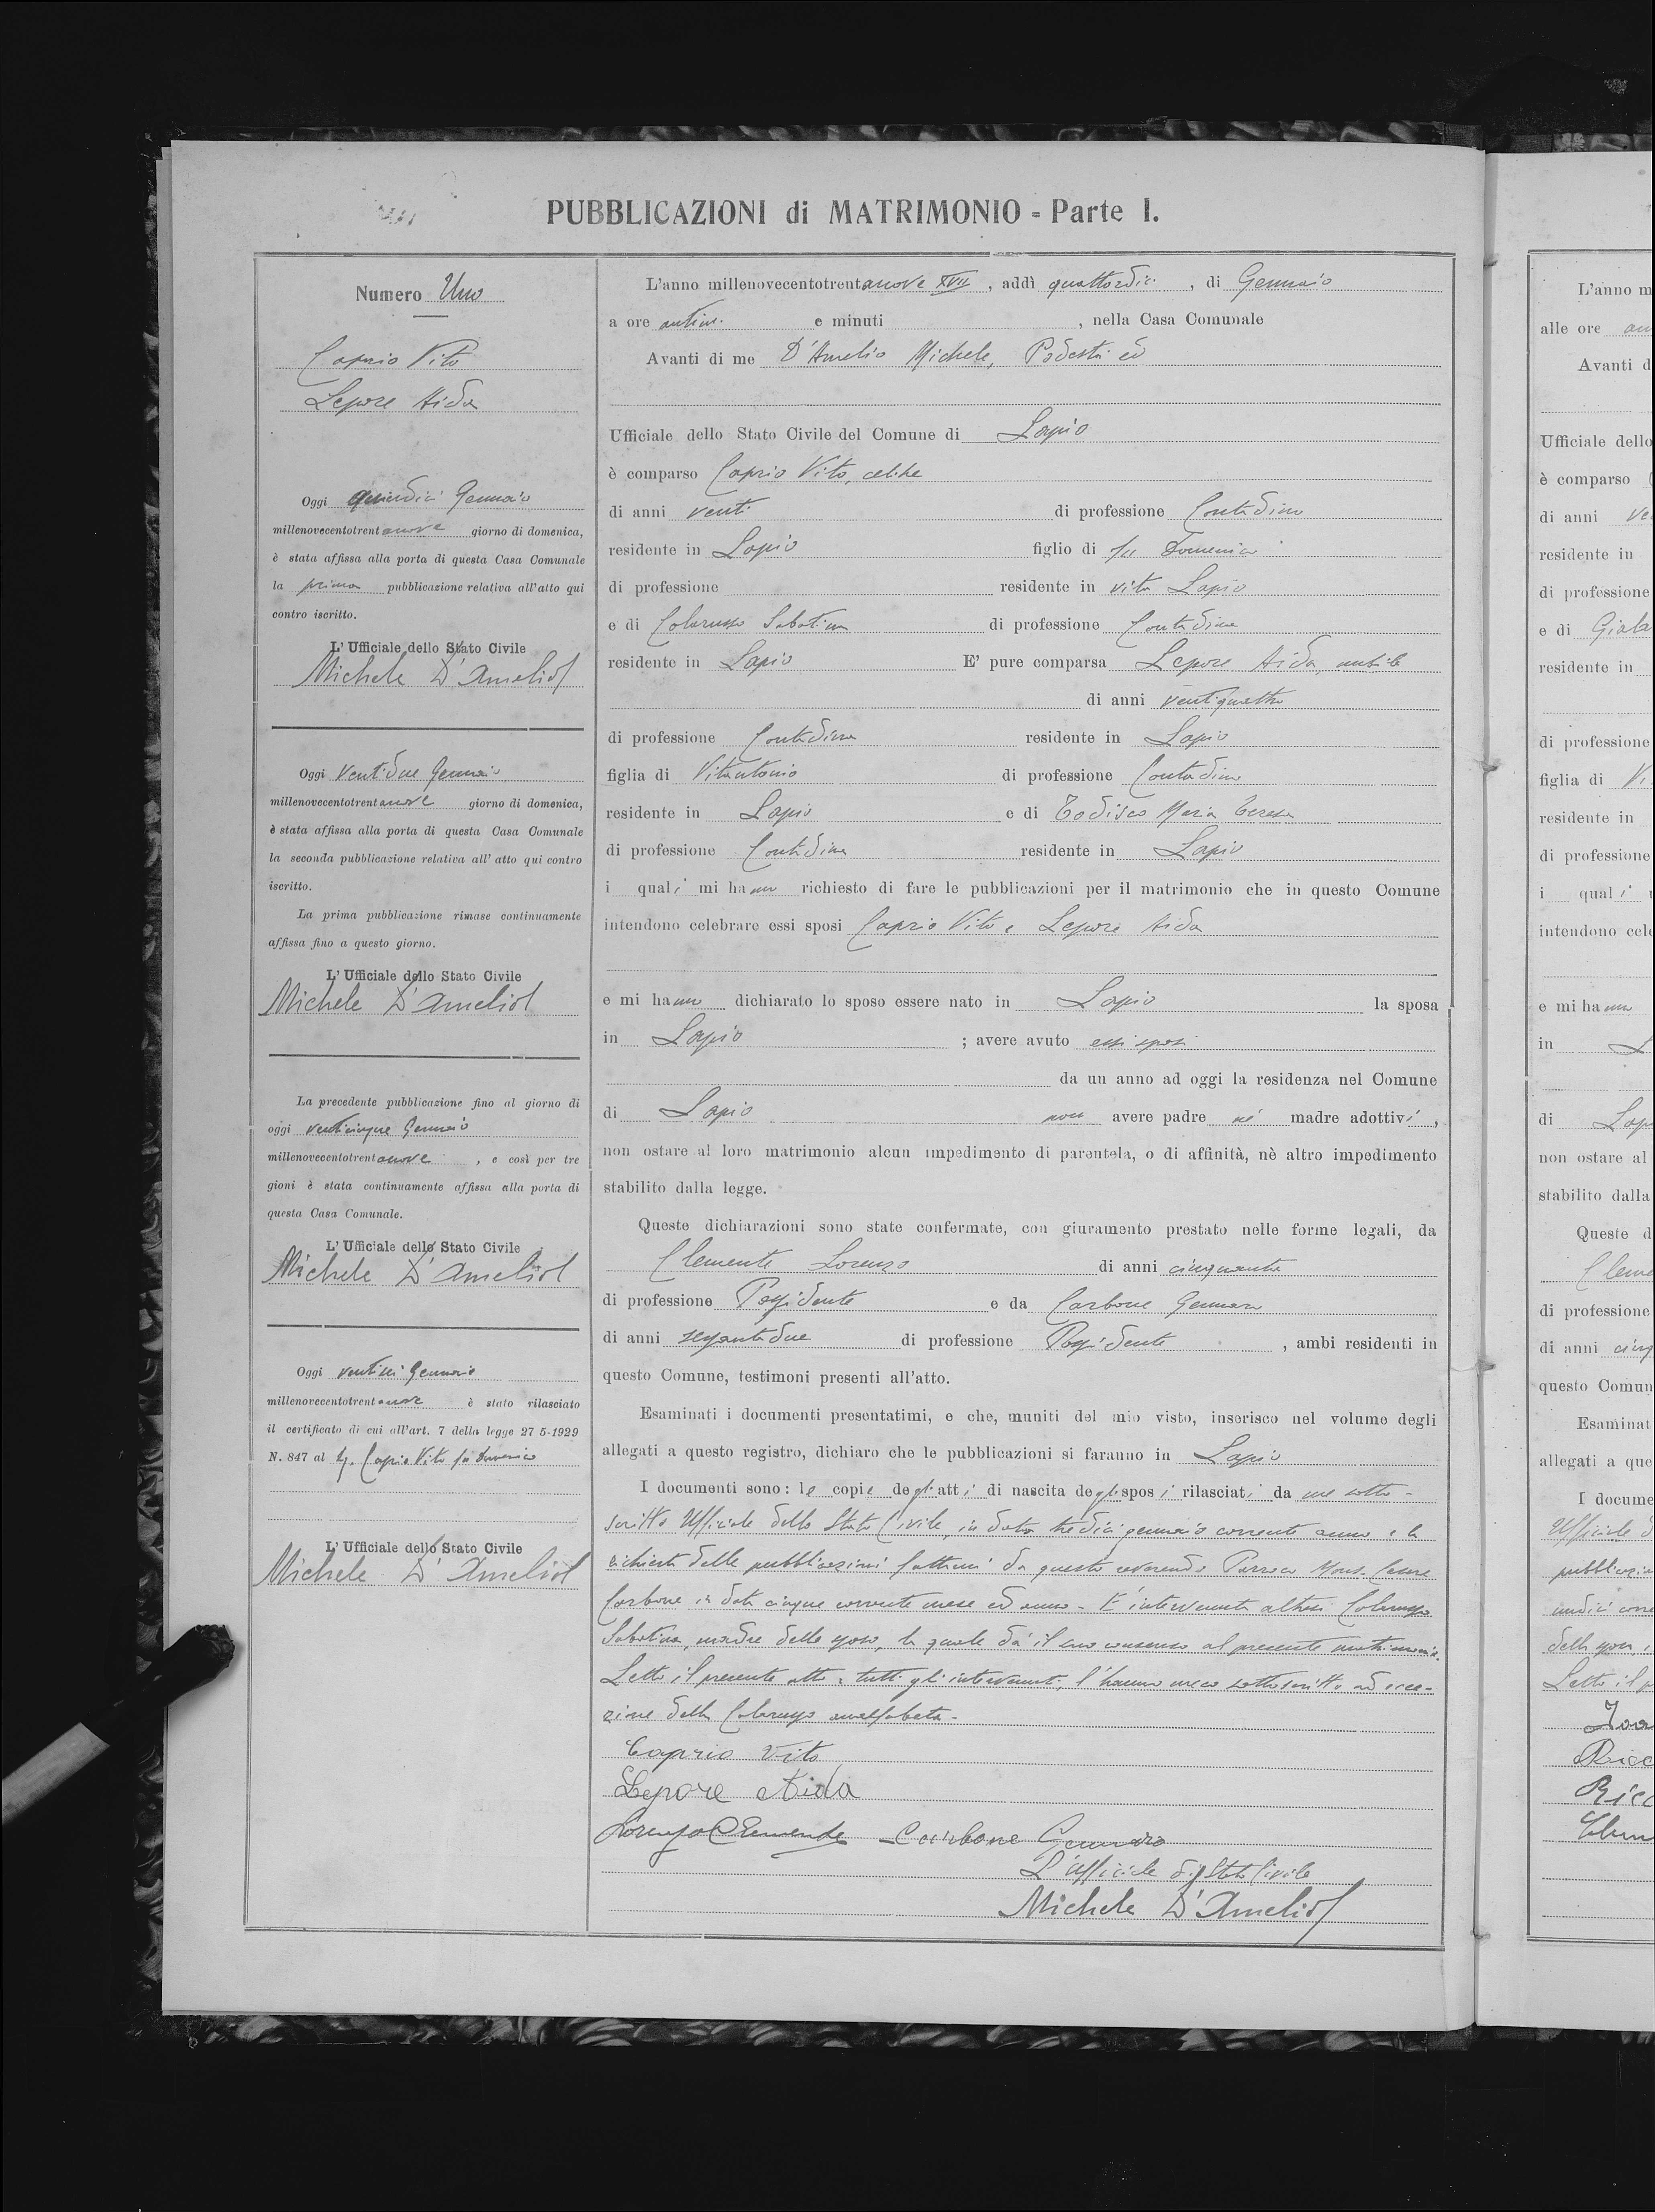 PUBBLICAZIONI di MATRIMONIO - Parte I.
Numero Uno
Caprio Vito
Lepore Aida
Oggi quindici Gennaio
millenovecentotrentanove giorno di domenica,
è stata affissa alla porta di questa Casa Comunale
la prima pubblicazione relativa all'atto qui
contro iscritto.
L'Ufficiale dello Stato Civile
Michele D'Amelio
Oggi ventidue Gennaio
millenovecentotrentanove giorno di domenica,
è stata affissa alla porta di questa Casa Comunale
la seconda pubblicazione relativa all'atto qui contro
iscritto.
La prima pubblicazione rimase continuamente
affissa fino a questo giorno.
L'Ufficiale dello Stato Civile
Michele D'Amelio
La precedente pubblicazione fino al giorno di
oggi venticinque Gennaio
millenovecentotrentanove, e così per tre
gioni è stata continuamente affissa alla porta di
questa Casa Comunale.
L'Ufficiale dello Stato Civile
Michele D'Amelio
Oggi ventisei Gennaio
millenovecentotrentanove è stato rilasciato
il certificato di cui all'art. 7 della legge 27 5-1929
N. 847 al Sig. Caprio Vito fu Domenico
L'Ufficiale dello Stato Civile
Michele D'Amelio
L'anno millenovecentotrentanove XVII, addì quattordici, di Gennaio
a ore antim. e minuti , nella Casa Comunale
Avanti di me D'Amelio Michele, Podestà ed
Ufficiale dello Stato Civile del Comune di Lapio
è comparso Caprio Vito, celibe
di anni venti di professione Contadino
residente in Lapio figlio di fu Domenico
di professione residente in vita Lapio
e di Colarusso Sabatina di professione Contadina
residente in Lapio E' pure comparsa Lepore Aida, nubile
di anni ventiquattro
di professione Contadina residente in Lapio
figlia di Vitantonio di professione Contadino
residente in Lapio e di Todisco Maria Teresa
di professione Contadina residente in Lapio
i quali mi hanno richiesto di fare le pubblicazioni per il matrimonio che in questo Comune
intendono celebrare essi sposi Caprio Vito e Lepore Aida
e mi hanno dichiarato lo sposo essere nato in Lapio la sposa
in Lapio ; avere avuto essi sposi
da un anno ad oggi la residenza nel Comune
di Lapio non avere padre nè madre adottivi,
non ostare al loro matrimonio alcun impedimento di parentela, o di affinità, nè altro impedimento
stabilito dalla legge.
Queste dichiarazioni sono state confermate, con giuramento prestato nelle forme legali, da
Clemente Lorenzo di anni cinquanta
di professione Possidente e da Carbone Gennaro
di anni sessantadue di professione Possidente, ambi residenti in
questo Comune, testimoni presenti all'atto.
Esaminati i documenti presentatimi, e che, muniti del mio visto, inserisco nel volume degli
allegati a questo registro, dichiaro che le pubblicazioni si faranno in Lapio
I documenti sono: le copie degli atti di nascita degli sposi rilasciati da me sotto-
scritto Ufficiale dello Stato Civile, in data tredici gennaio corrente anno e la
richiesta delle pubblicazioni fattami da questo reverendo Parroco Mons. Cesare
Carbone in data cinque corrente mese ed anno - È intervenuta altresì Colarusso
Sabatina, madre dello sposo, la quale dà il suo consenso al presente matrimonio.
Letto il presente atto a tutti gl'intervenuti, l'hanno meco sottoscritto ad ecce-
zione della Colarusso analfabeta -
Caprio Vito
Lepore Aida
Lorenzo Clemente Carbone Gennaro
L'Ufficiale di Stato Civile
Michele D'Amelio
L'anno m
alle ore an
Avanti d
Ufficiale dello
è comparso
di anni ve
residente in
di professione
e di Giala
residente in
di professione
figlia di Vi
residente in
di professione
i quali
intendono cele
e mi hanno
in L
di Lap
non ostare al
stabilito dalla
Queste d
Cleme
di professione
di anni cinq
questo Comun
Esaminat
allegati a que
I docume
Ufficiale d
pubblicazio
undici corre
Letto il p
Ricc